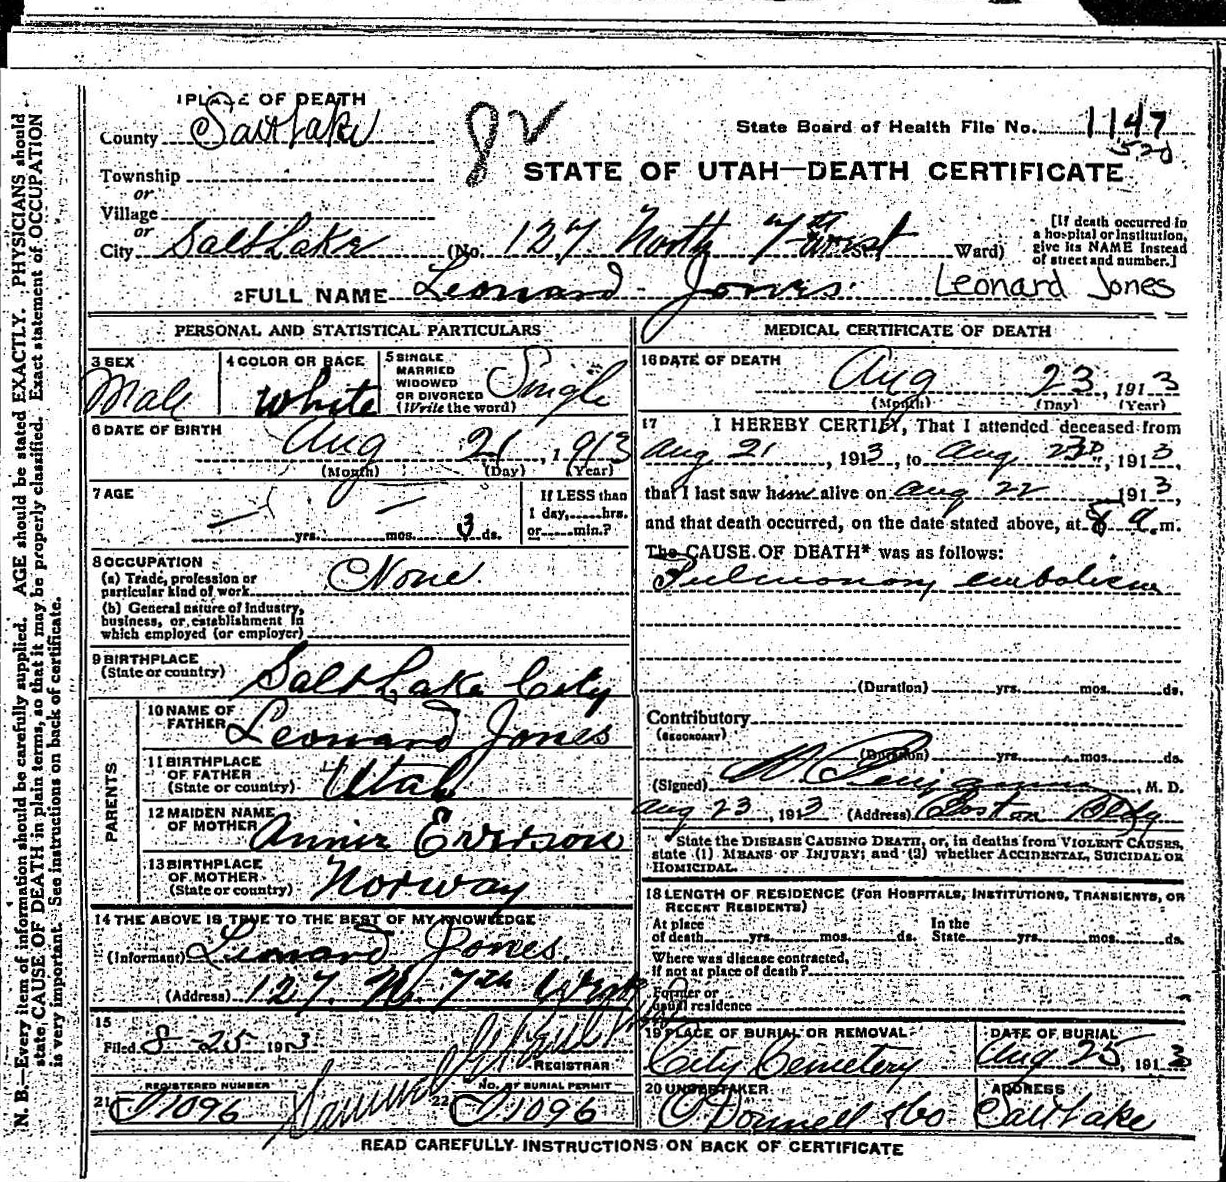 1 PLACE OF DEATH
County Salt Lake
82
State Board of Health File No. 1147
520
STATE OF UTAH—DEATH CERTIFICATE
Township
or
Village
or
City Salt Lake (No. 127 North 7th West St. Ward)
[If death occurred in
a hospital or institution,
give its NAME instead
of street and number.]
2 FULL NAME Leonard Jones Leonard Jones
PERSONAL AND STATISTICAL PARTICULARS
3 SEX
Male
4 COLOR OR RACE
White
5 SINGLE
MARRIED
WIDOWED
OR DIVORCED
(Write the word)
Single
6 DATE OF BIRTH
Aug 21, 1913
(Month) (Day) (Year)
7 AGE
— yrs. — mos. 3 ds.
If LESS than
1 day,......hrs.
or......min.?
8 OCCUPATION
(a) Trade, profession or
particular kind of work None
(b) General nature of industry,
business, or establishment in
which employed (or employer)
9 BIRTHPLACE
(State or country) Salt Lake City
PARENTS
10 NAME OF
FATHER Leonard Jones
11 BIRTHPLACE
OF FATHER
(State or country) Utah
12 MAIDEN NAME
OF MOTHER Annie Everson
13 BIRTHPLACE
OF MOTHER
(State or country) Norway
14 THE ABOVE IS TRUE TO THE BEST OF MY KNOWLEDGE
(Informant) Leonard Jones.
(Address) 127. N. 7th West
15
Filed 8-25 1913
REGISTRAR
REGISTERED NUMBER
21 D1096
NO. OF BURIAL PERMIT
22 D1096
MEDICAL CERTIFICATE OF DEATH
16 DATE OF DEATH
Aug 23, 1913
(Month) (Day) (Year)
17 I HEREBY CERTIFY, That I attended deceased from
Aug 21, 1913, to Aug 23rd, 1913,
that I last saw him alive on Aug 22 1913,
and that death occurred, on the date stated above, at 8 a.m.
The CAUSE OF DEATH* was as follows:
Pulmonary embolism
(Duration) yrs. mos. ds.
Contributory
(SECONDARY)
(Duration) yrs. mos. ds.
(Signed) , M. D.
Aug 23, 1913 (Address) Boston Bldg
State the DISEASE CAUSING DEATH, or, in deaths from VIOLENT CAUSES,
state (1) MEANS OF INJURY; and (2) whether ACCIDENTAL, SUICIDAL OR
HOMICIDAL.
18 LENGTH OF RESIDENCE (FOR HOSPITALS, INSTITUTIONS, TRANSIENTS, OR
RECENT RESIDENTS)
At place
of death yrs. mos. ds.
In the
State yrs. mos. ds.
Where was disease contracted,
if not at place of death?
Former or
usual residence
19 PLACE OF BURIAL OR REMOVAL
City Cemetery
DATE OF BURIAL
Aug 25, 1913
20 UNDERTAKER
O'Donnell & Co
ADDRESS
Salt Lake
READ CAREFULLY INSTRUCTIONS ON BACK OF CERTIFICATE
N. B.—Every item of information should be carefully supplied. AGE should be stated EXACTLY. PHYSICIANS should
state CAUSE OF DEATH in plain terms, so that it may be properly classified. Exact statement of OCCUPATION
is very important. See instructions on back of certificate.